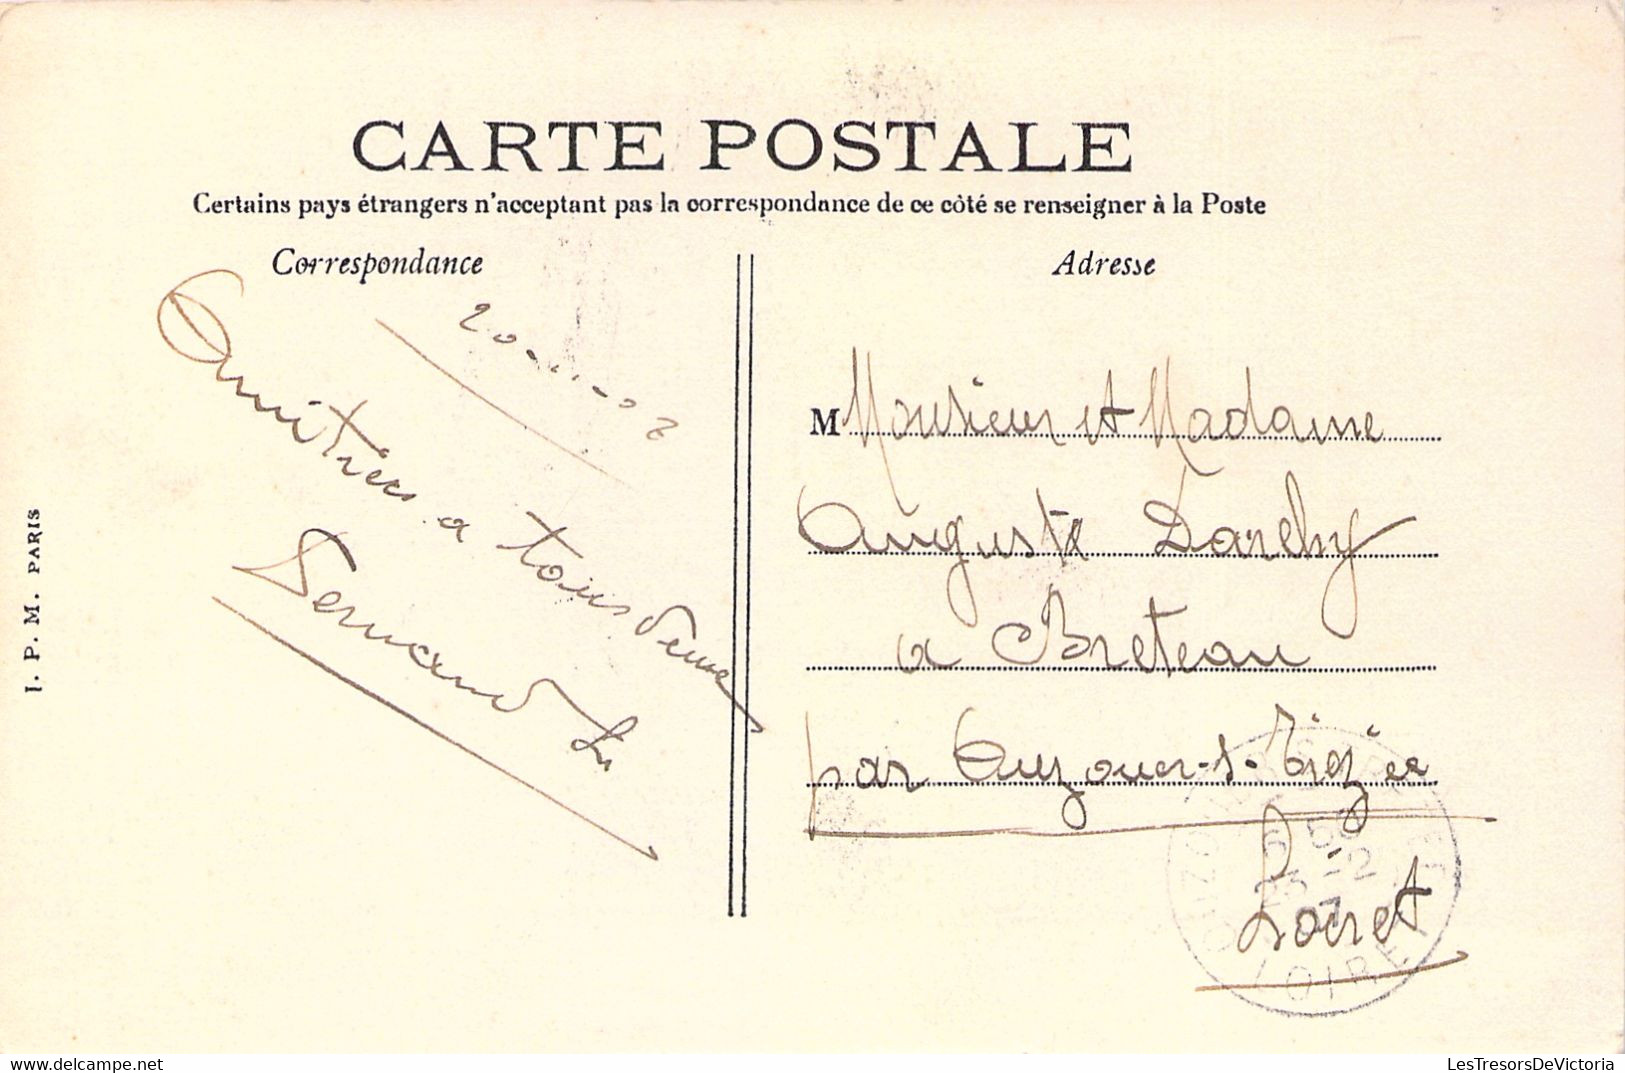 CARTE POSTALE
Certains pays étrangers n'acceptant pas la correspondance de ce côté se renseigner à la Poste
Correspondance
20-11-07
Amitiés a tous deux
Fernand
Adresse
M Monsieur et Madame
Auguste Darchy
a Breteau
par Ouzouer-s-Trézée
Loiret
LOIRET
I. P. M. PARIS
LesTresorsDeVictoria